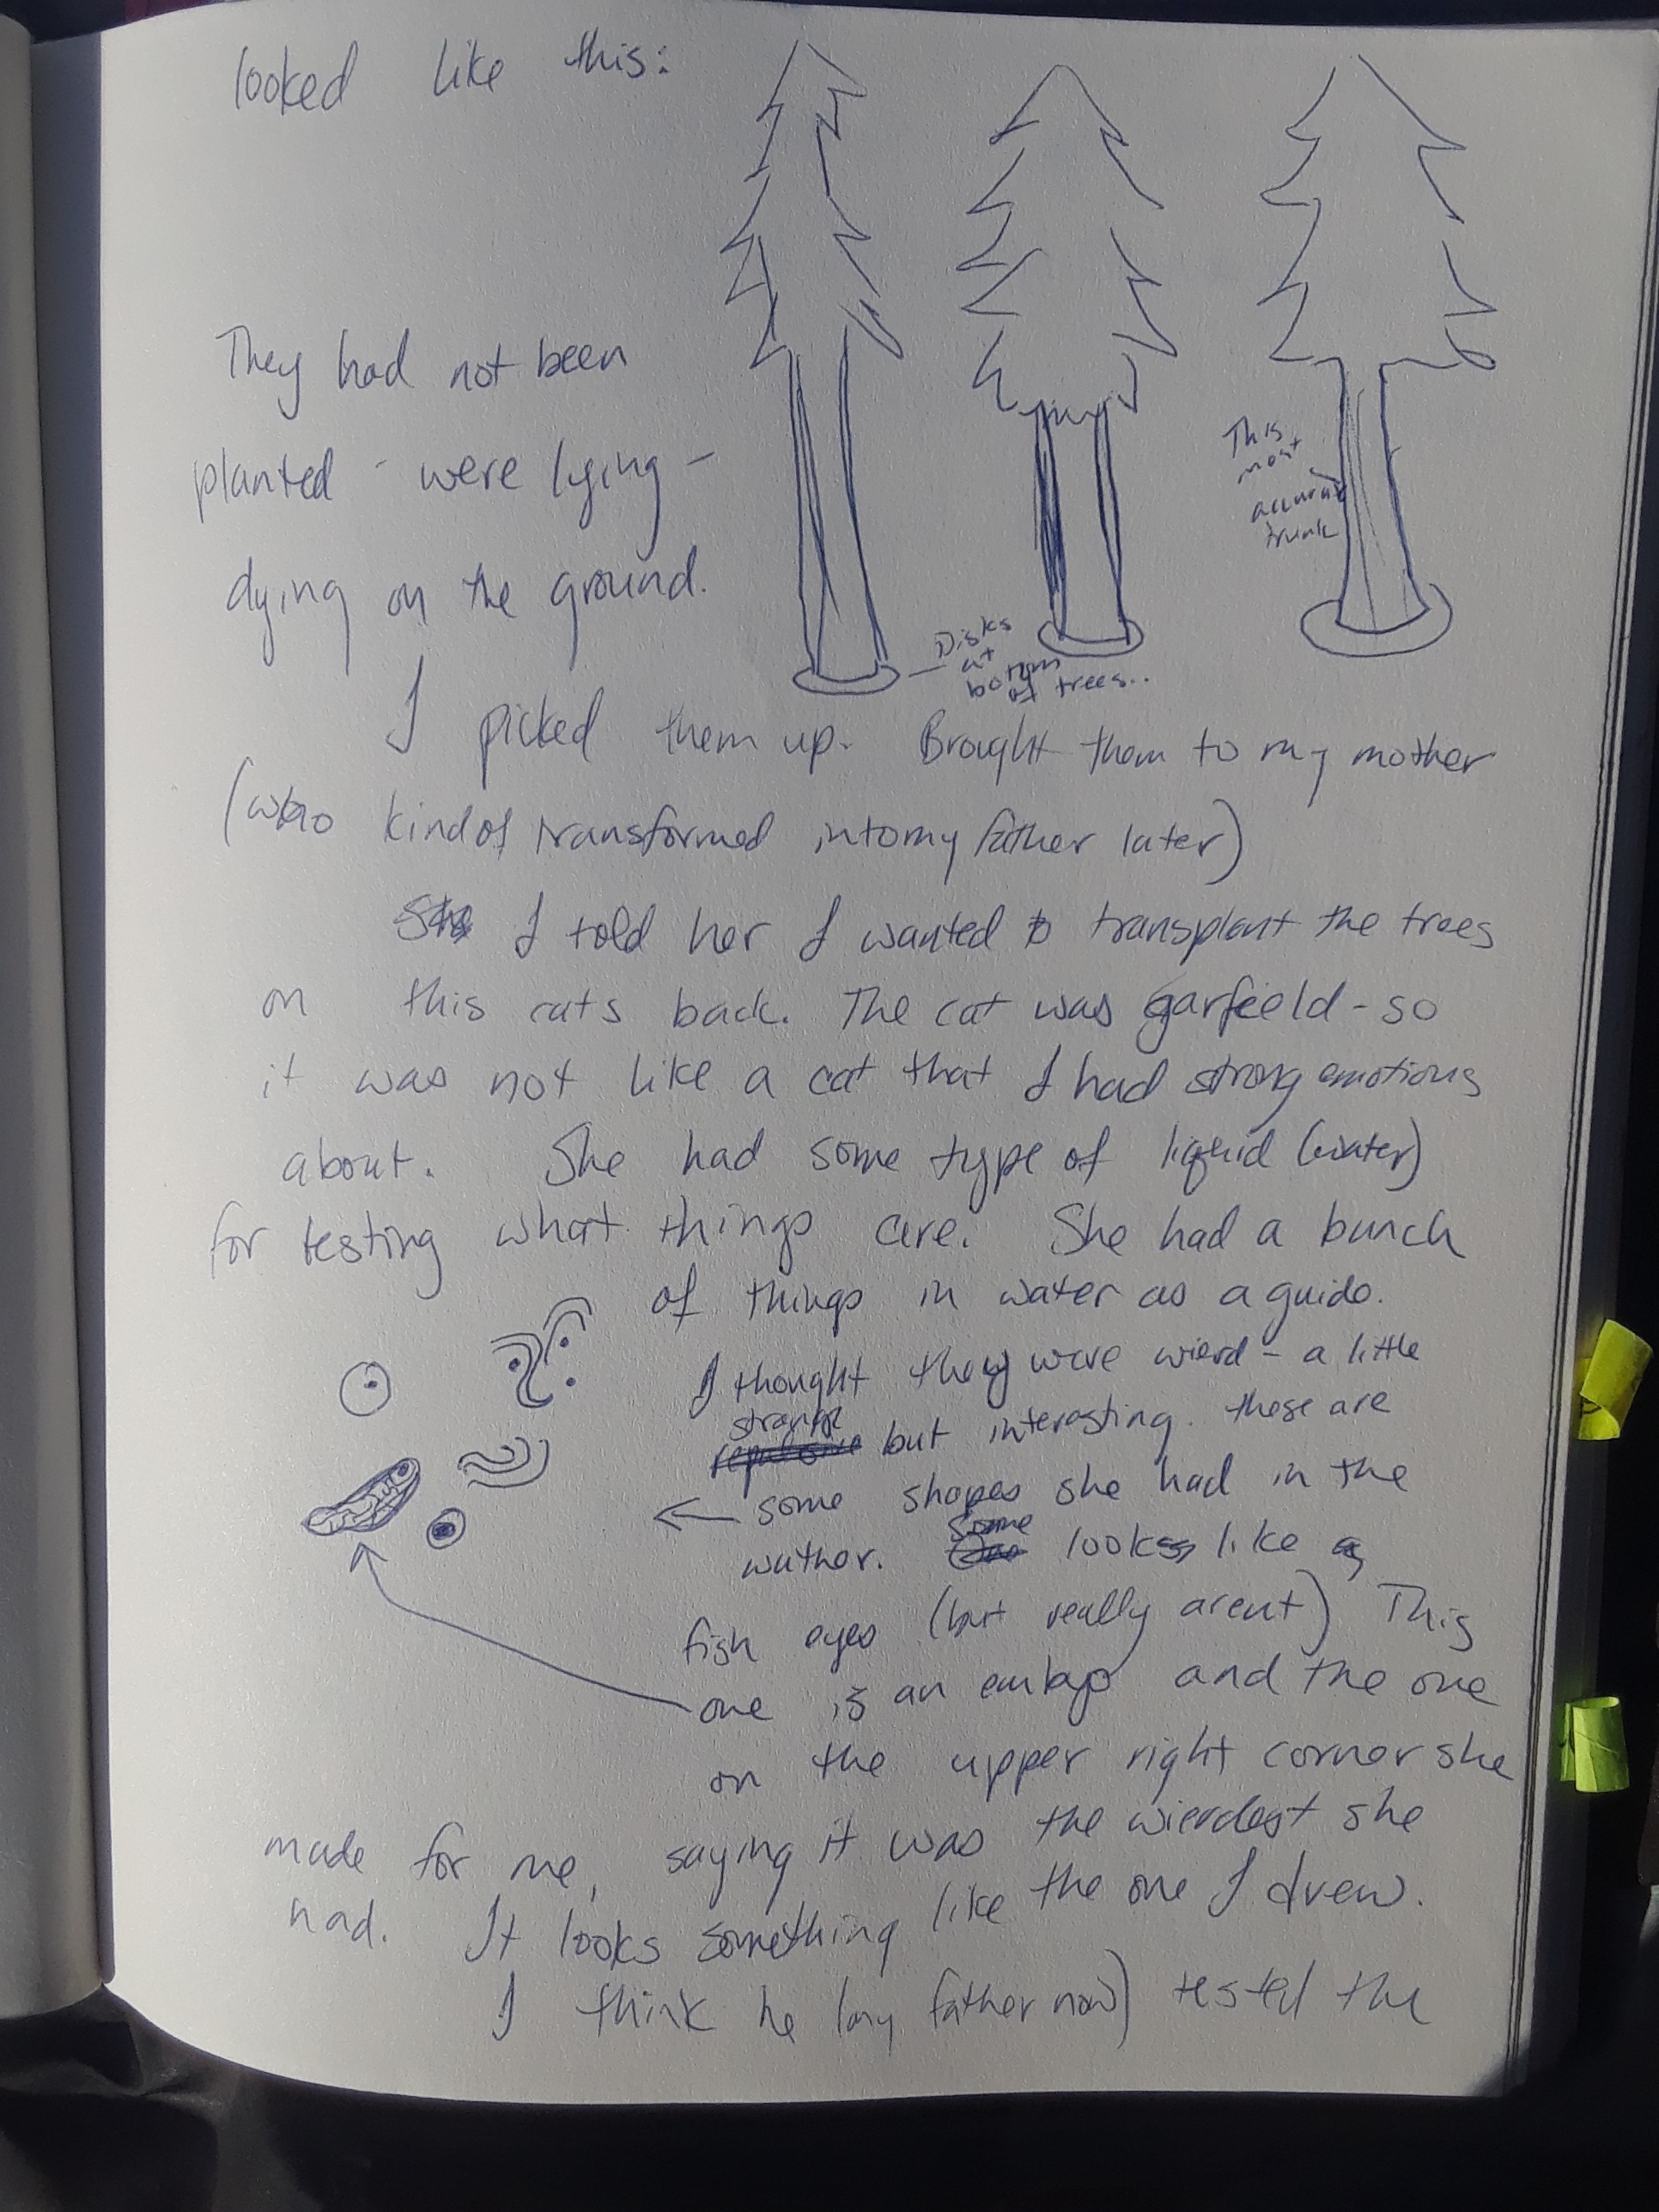 looked like this:
They had not been
planted - were lying -
dying on the ground.
This
most
accurate
trunk
Disks
at
bottom
of trees..
I picked them up. Brought them to my mother
(who kind of transformed into my father later)
She I told her I wanted to transplant the trees
on this cats back. The cat was garfield - so
it was not like a cat that I had strong emotions
about. She had some type of liquid (water)
for testing what things are. She had a bunch
of things in water as a guide.
I thought they were wierd - a little
strange
repulsive but interesting. these are
some shapes she had in the
Some
wather. One looks, like a
fish eyes (but really arent) This
one is an and the one
on the upper right corner she
made for me, saying it was the wierdest she
had. It looks something like the one I drew.
I think he (my father now) tested the